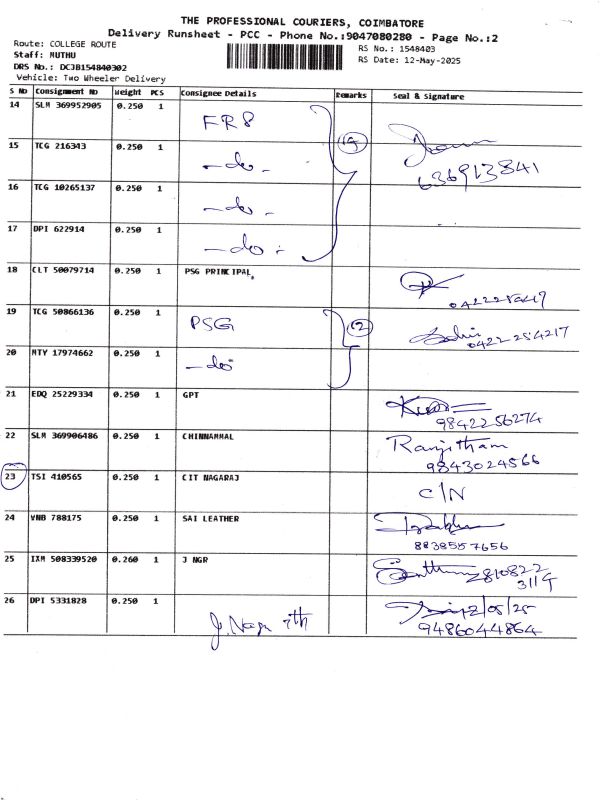 THE PROFESSIONAL COURIERS, COIMBATORE
Delivery Runsheet - PCC - Phone No.:9047080280 - Page No.:2
Route: COLLEGE ROUTE
Staff: MUTHU
DRS No.: DCJB154840302
Vehicle: Two Wheeler Delivery
RS No.: 1548403
RS Date: 12-May-2025
S No Consignment No Weight PCS Consignee Details Remarks Seal & Signature
14 SLM 369952905 0.250 1 FRS
15 TCG 216343 0.250 1 -do-
636913841
16 TCG 10265137 0.250 1 -do-
17 DPI 622914 0.250 1 -do-
18 CLT 50079714 0.250 1 PSG PRINCIPAL
19 TCG 50866136 0.250 1 PSG
0422 254217
20 MTY 17974662 0.250 1 -do-
21 EDQ 25229334 0.250 1 GPT
9842256274
22 SLM 369906486 0.250 1 CHINNAMMAL Ranjitham
9843024566
23 TSI 410565 0.250 1 CIT NAGARAJ C/N
24 VNB 788175 0.250 1 SAI LEATHER
8838557656
25 IXM 508339520 0.260 1 J NGR
2810822
3119
26 DPI 5331828 0.250 1 J. Nagr 12/05/25
9486044864